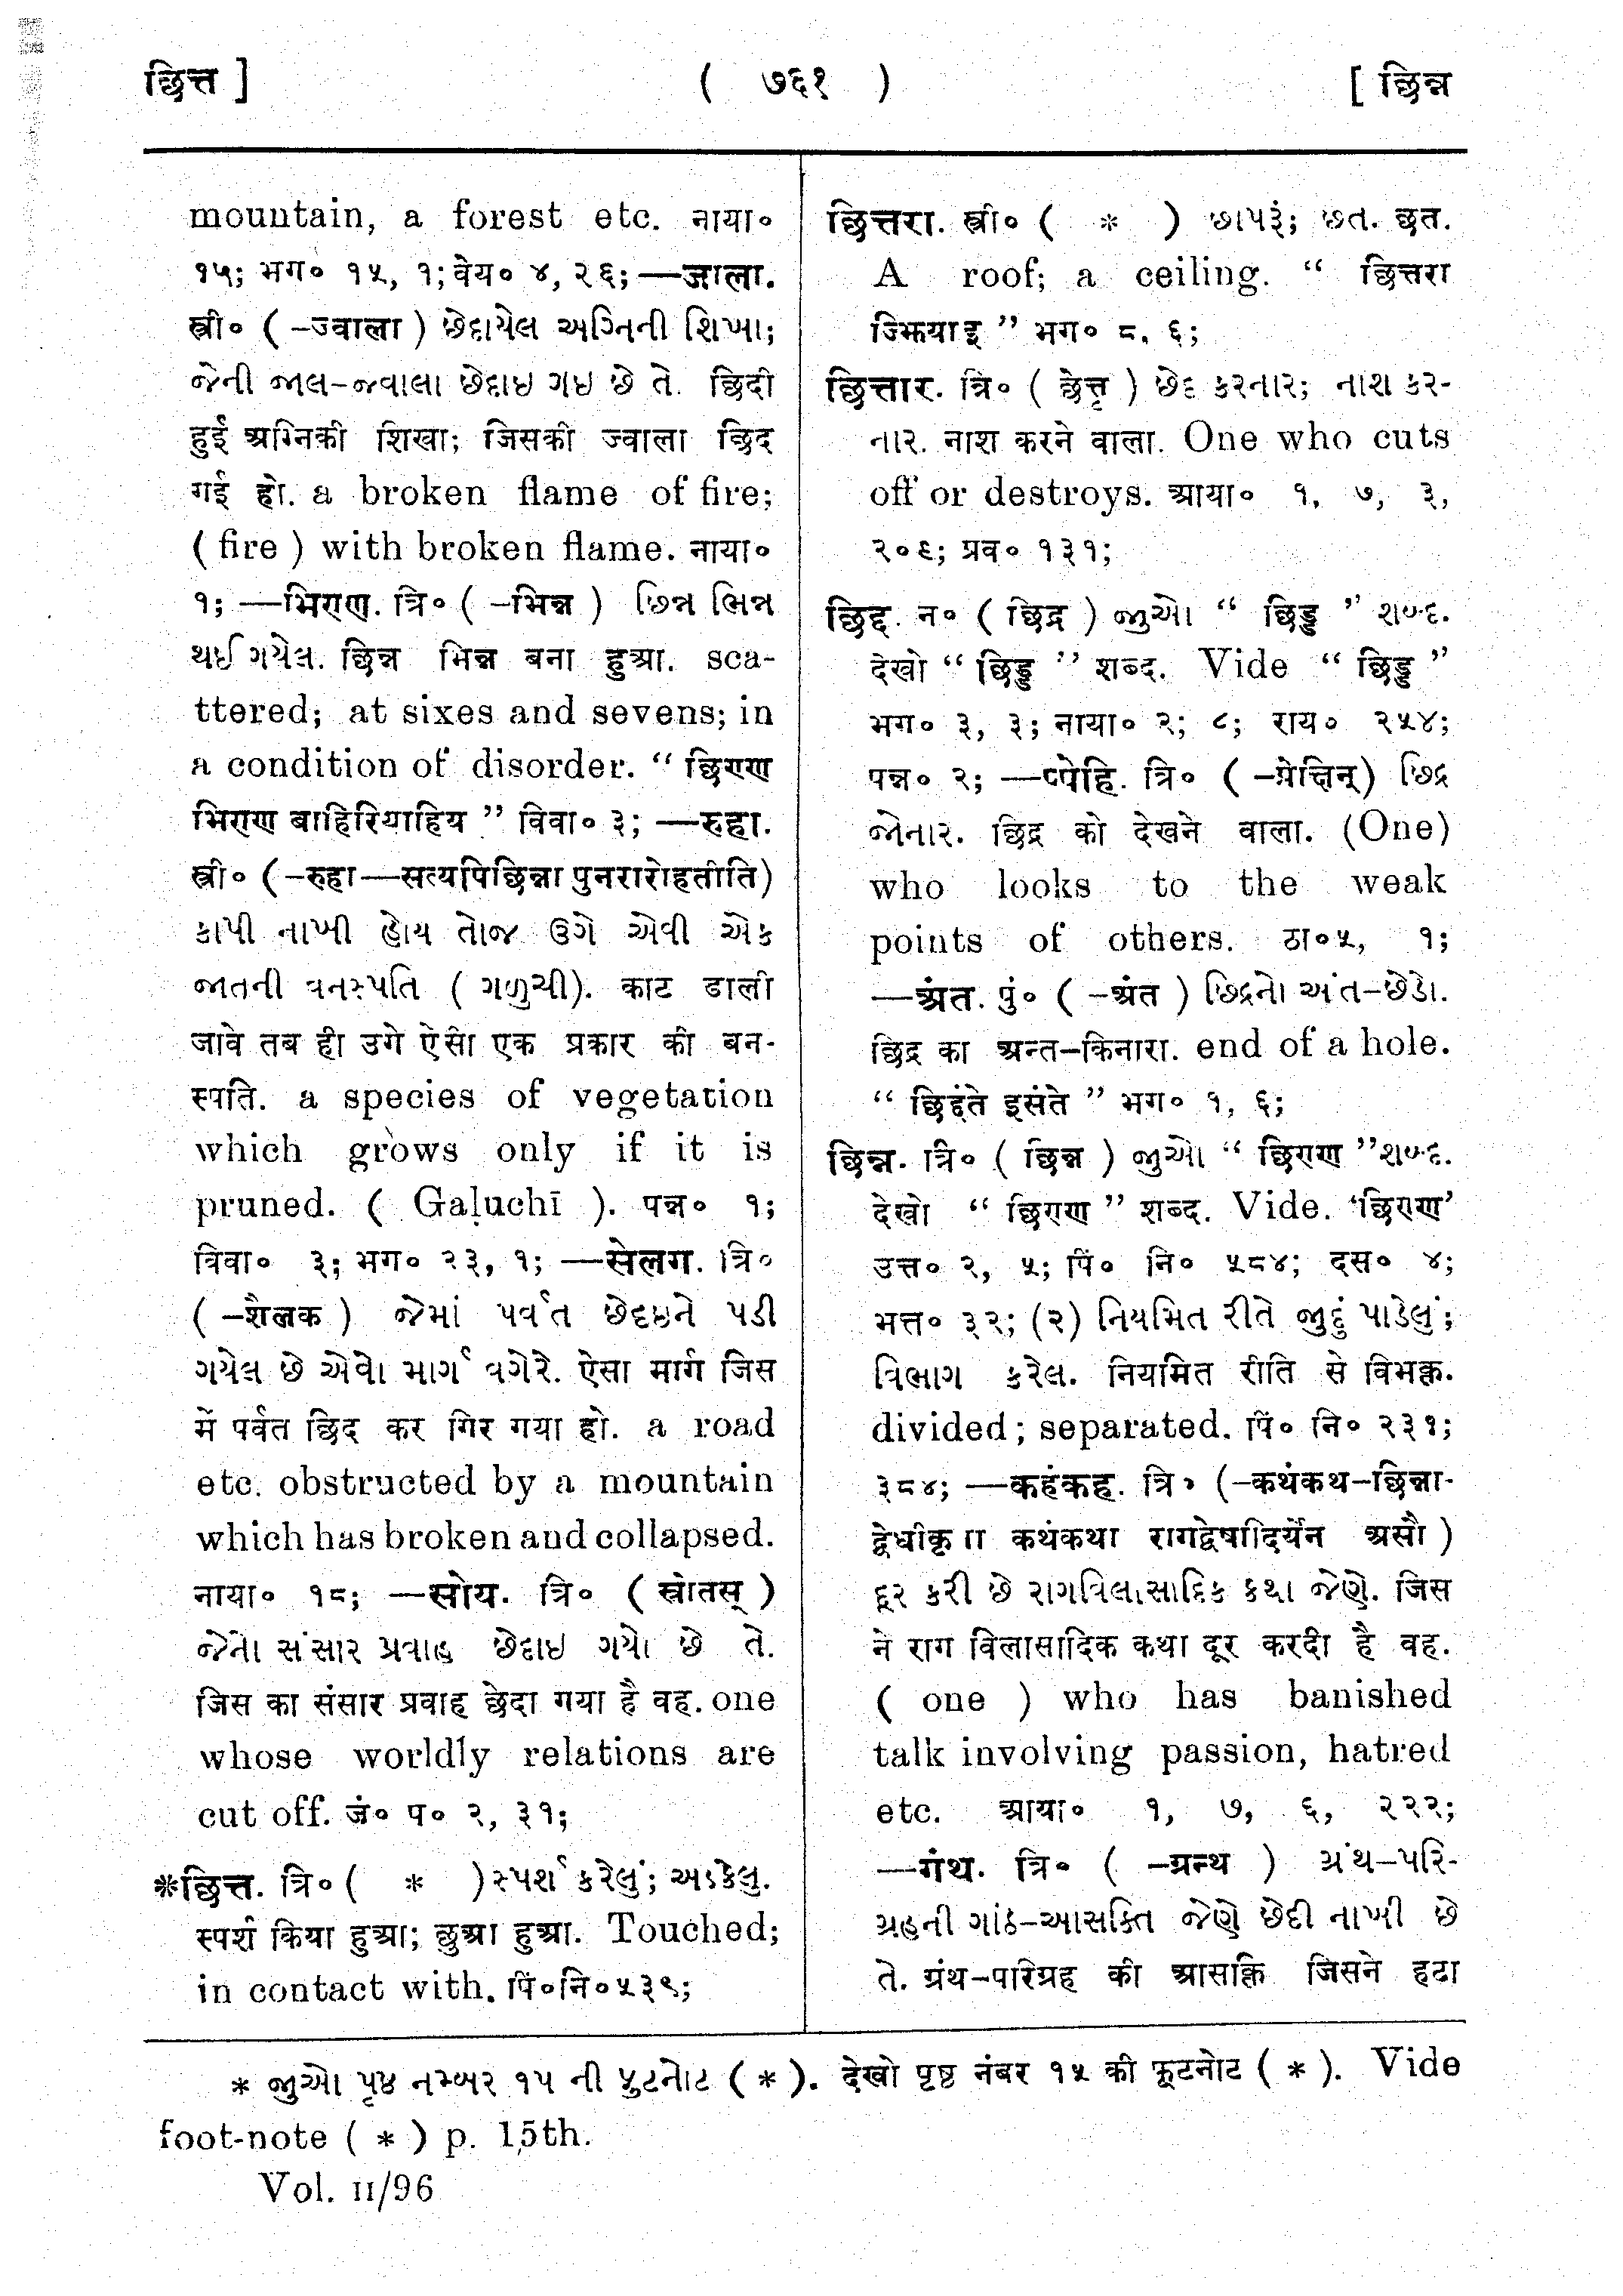 छित्त ]
( ७६१ )
[ छिन्न
mountain, a forest etc. नाया०
१५; भग० १५, १; वेय० ४, २६; —जाला.
स्त्री० ( -ज्वाला ) છેદાયેલ અગ્નિની શિખા;
જેની જાલ-જ્વાલા છેદાઇ ગઇ છે તે. छिदी
हुई अग्निकी शिखा; जिसकी ज्वाला छिद
गई हो. a broken flame of fire;
( fire ) with broken flame. नाया०
१; —भिराण. त्रि० ( -भिन्न ) છિન્ન ભિન્ન
થઈ ગયેલ. छिन्न भिन्न बना हुआ. sca-
ttered; at sixes and sevens; in
a condition of disorder. “ छिराण
भिराण बाहिरियाहिय ” विवा० ३; —रुहा.
स्त्री० ( -रुहा—सत्यपिछिन्ना पुनरारोहतीति)
કાપી નાખી હોય તોજ ઉગે એવી એક
જાતની વનસ્પતિ ( ગળુચી). काट डाली
जावे तब ही उगे ऐसी एक प्रकार की बन-
स्पति. a species of vegetation
which grows only if it is
pruned. ( Gaḷuchī ). पन्न० १;
विवा० ३; भग० २३, १; —सेलग. त्रि०
( -शैलक ) જેમાં પર્વત છેદઇને પડી
ગયેલ છે એવો માર્ગ વગેરે. ऐसा मार्ग जिस
में पर्वत छिद कर गिर गया हो. a road
etc. obstructed by a mountain
which has broken and collapsed.
नाया० १८; —सोय. त्रि० ( स्रोतस् )
જેનો સંસાર પ્રવાહ છેદાઇ ગયો છે તે.
जिस का संसार प्रवाह छेदा गया है वह. one
whose worldly relations are
cut off. जं० प० २, ३१;
*छित्त. त्रि० ( * ) સ્પર્શ કરેલું; અડકેલુ.
स्पर्श किया हुआ; छुआ हुआ. Touched;
in contact with. पिं०नि०५३९;
छित्तरा. स्त्री० ( * ) છાપરૂં; છત. छत.
A roof; a ceiling. “ छित्तरा
ज्झियाइ ” भग० ८, ६;
छित्तार. त्रि० ( छेत्तृ ) છેદ કરનાર; નાશ કર-
નાર. नाश करने वाला. One who cuts
off or destroys. आया० १, ७, ३,
२०६; प्रव० १३१;
छिद्द. न० ( छिद्र ) જુઓ “ छिड्ड ” શબ્દ.
देखो “ छिड्ड ” शब्द. Vide “ छिड्ड ”
भग० ३, ३; नाया० २; ८; राय० २५४;
पन्न० २; —प्पेहि. त्रि० ( -प्रेक्षिन्) છિદ્ર
જોનાર. छिद्र को देखने वाला. (One)
who looks to the weak
points of others. ठा०५, १;
—अंत. पुं० ( -अंत ) છિદ્રનો અંત-છેડો.
छिद्र का अन्त-किनारा. end of a hole.
“ छिद्दंते इसंते ” भग० १, ६;
छिन्न. त्रि० ( छिन्न ) જુઓ “ छिराण ” શબ્દ.
देखो “ छिराण ” शब्द. Vide. ‘छिराण’
उत्त० २, ५; पिं० नि० ५८४; दस० ४;
भत्त० ३२; (२) નિયમિત રીતે જુદું પાડેલું;
વિભાગ કરેલ. नियमित रीति से विभक्त.
divided; separated. पिं० नि० २३१;
३८४; —कहंकह. त्रि० (-कथंकथ-छिन्ना-
द्वेधीकृता कथंकथा रागद्वेषादिर्येन असौ )
દૂર કરી છે રાગવિલાસાદિક કથા જેણે. जिस
ने राग विलासादिक कथा दूर करदी है वह.
( one ) who has banished
talk involving passion, hatred
etc. आया० १, ७, ६, २२२;
—गंथ. त्रि० ( -ग्रन्थ ) ગ્રંથ-પરિ-
ગ્રહની ગાંઠ-આસક્તિ જેણે છેદી નાખી છે
તે. ग्रंथ-परिग्रह की आसक्ति जिसने हटा
* જુઓ પૃષ્ઠ નમ્બર ૧૫ ની ફુટનોટ ( * ). देखो पृष्ठ नंबर १५ की फूटनोट ( * ). Vide
foot-note ( * ) p. 15th.
Vol. II/96